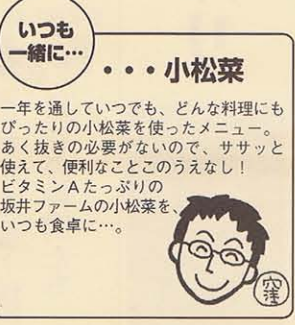 いつも
一緒に…
・・・小松菜
一年を通していつでも、どんな料理にも
ぴったりの小松菜を使ったメニュー。
あく抜きの必要がないので、ササッと
使えて、便利なことこのうえなし！
ビタミンAたっぷりの
坂井ファームの小松菜を、
いつも食卓に…。
窪